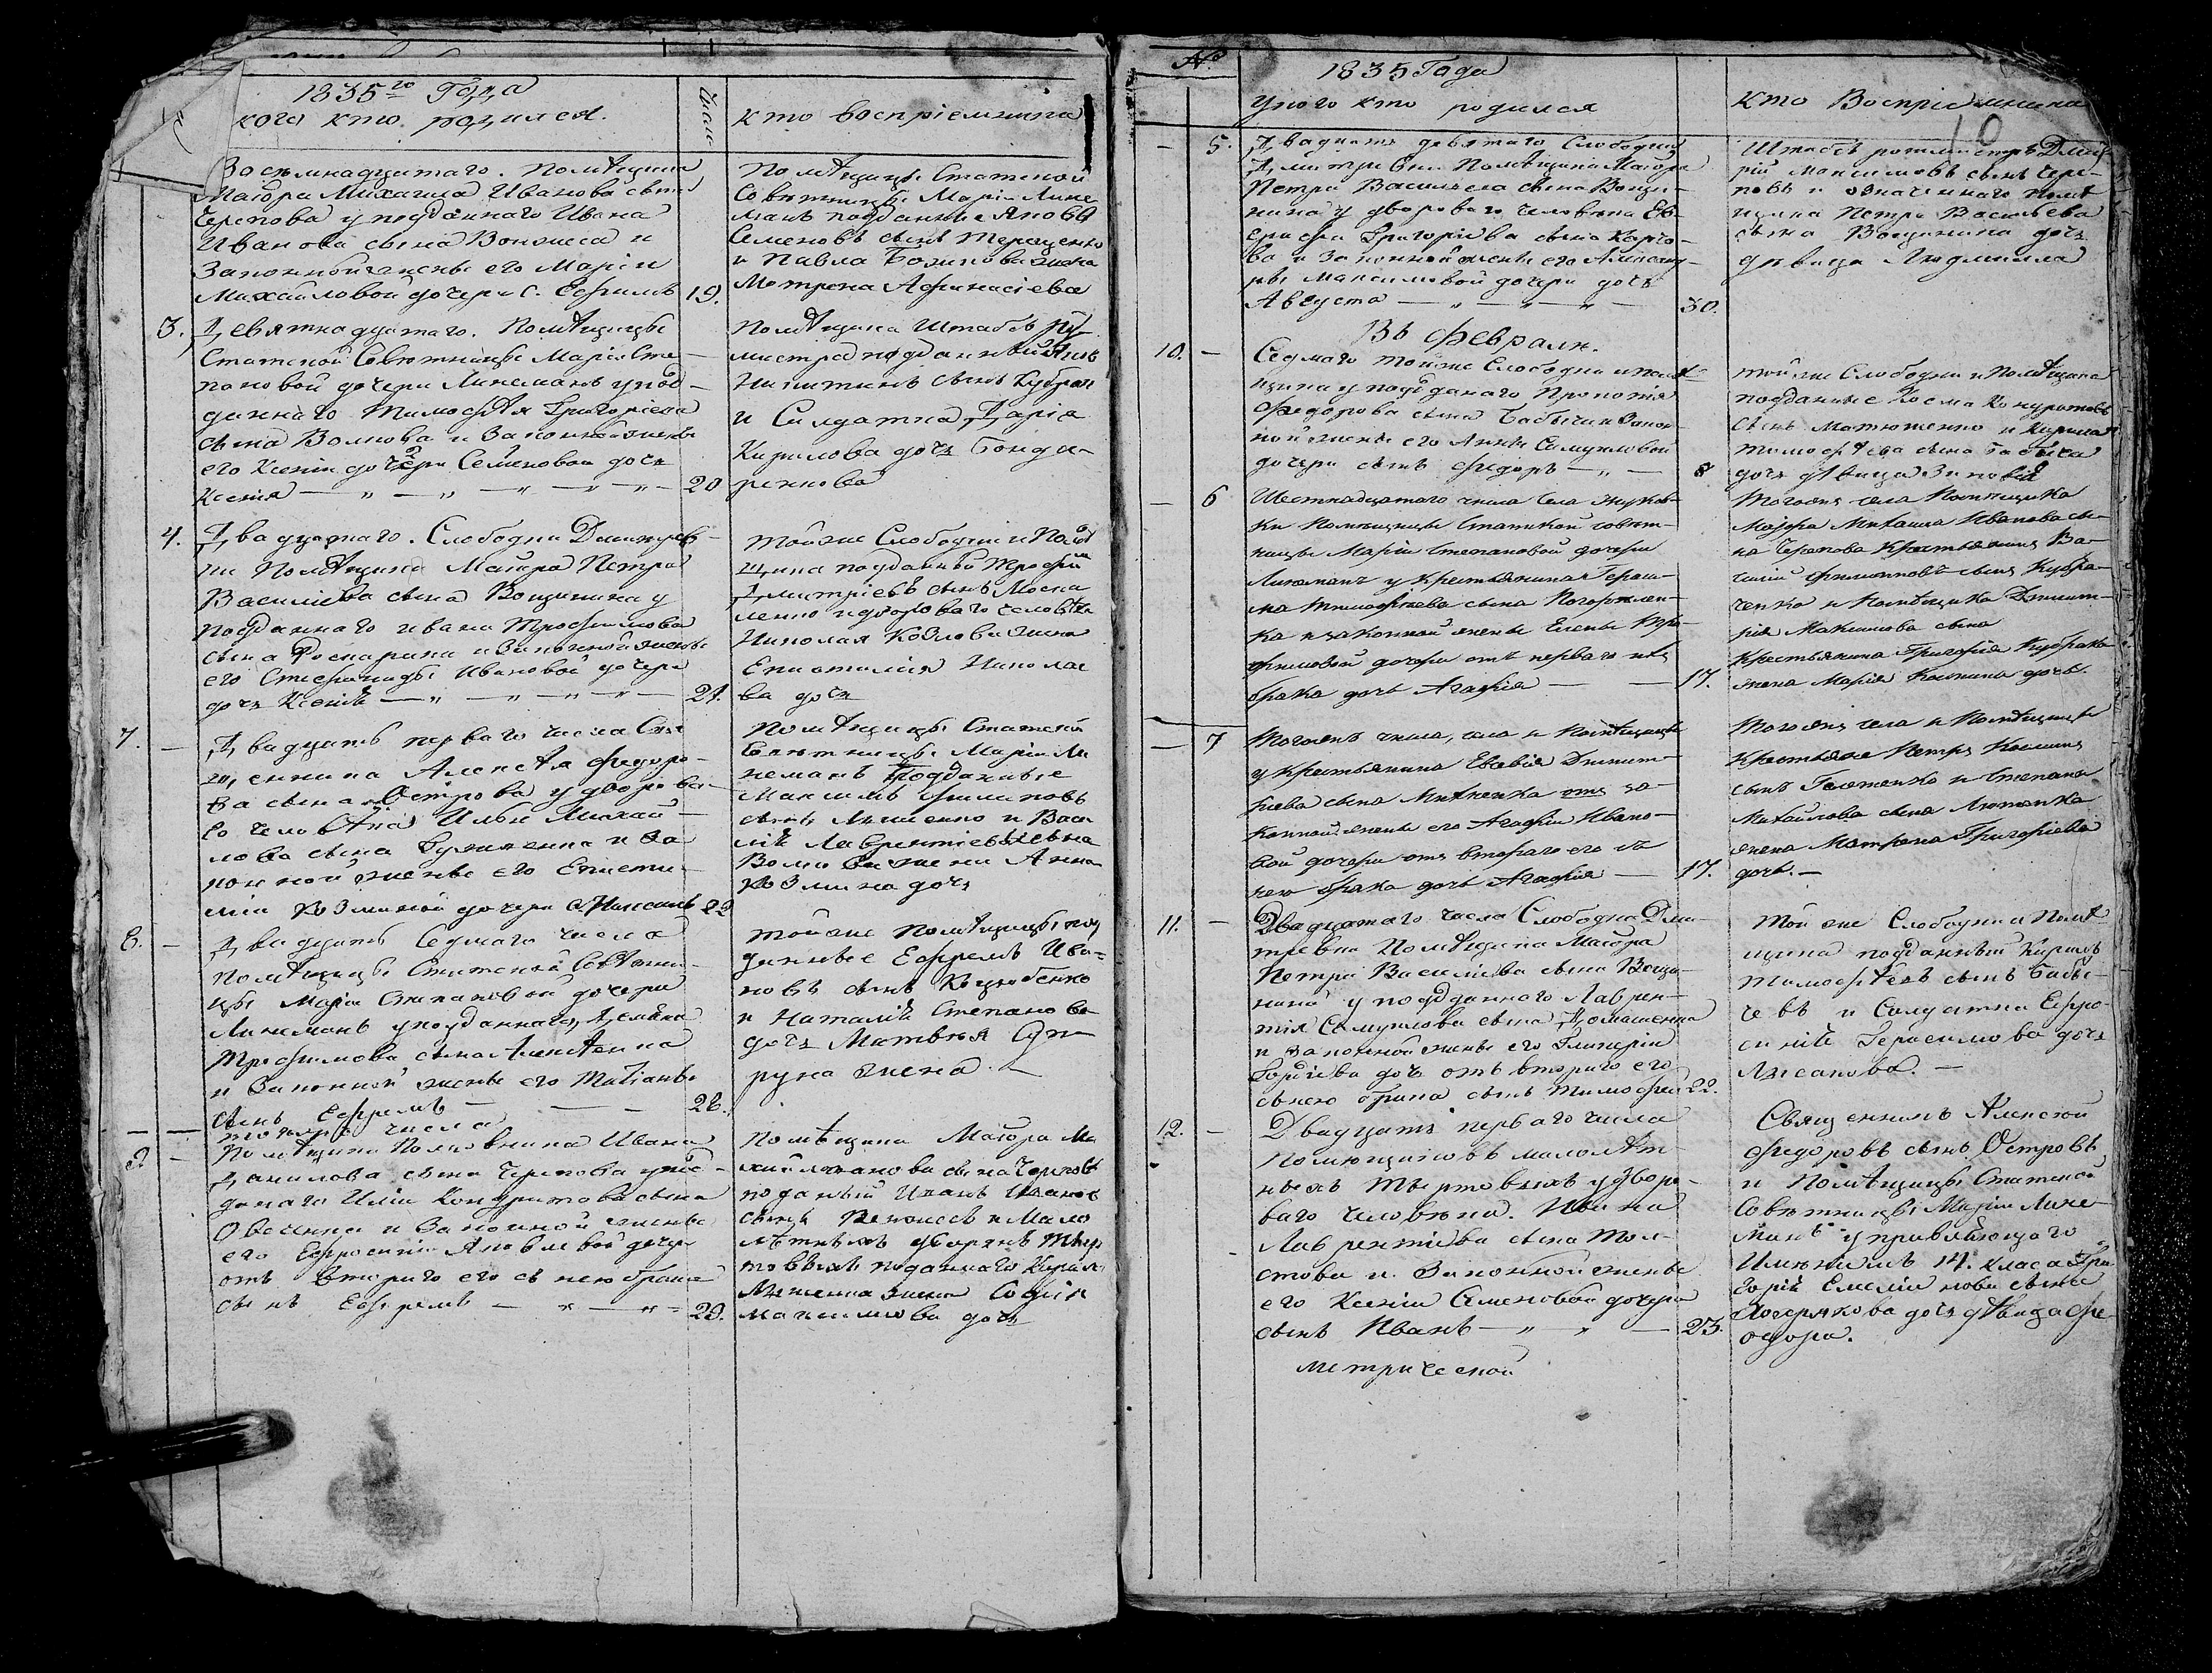 1835го Года
кого кто родился.
Число
кто воспріемники
Восемнадцатаго. Помѣщика
Маіора Михаила Иванова сына
Черепова у подданнаго Ивана
Иванова сына и
Законной жены его Маріи
Михайловой дочери с. Ефимъ 19.
Помѣщицы Статской
Совѣтницы Маріи Лине
манъ подданные Яковъ
Семеновъ сынъ Терещенко
и Павла жена
Мотрона Афанасіева
3. Девятнадцатаго. Помѣщицы
Статской Совѣтницы Маріи Сте-
пановой дочери Линеманъ у под-
даннаго Тимофѣя Григоріева
сына Волкова и Законной жены
его Ксеніи дочери Семеновой дочь
Ксенія — „ — „ — „ — „ — 20
Помѣщика Штабсъ
мистра подданный
Никитинъ сынъ
и Салдатка Дарія
Кирилова дочь Бонда-
ренкова
4. Двадцатаго. Слободки Дмитрев-
ки Помѣщика Маіора Петра
Василіева сына Вощинина у
подданнаго Ивана Трофимова
сына и Законной жены
его Степаниды Ивановой дочери
дочь Ксенія — „ — „ — „ — 21.
тойже Слободки и Помѣ
щика подданный Трофим
Дмитріевъ сынъ Моска
ленко и двороваго человѣка
Николая Козлова жена
Епистимія Николае
ва дочь
7. — Двадцать перваго числа Свя
щенника Алексѣя Федоро-
ва сына Острова у дворова-
го человѣка Ильи Михай-
лова сына и За
конной жены его Еписти-
міи Козминой дочери с. 22
Помѣщицы Статской
Совѣтницы Маріи Ли
неманъ Подданные
Максимъ Филиповъ
сынъ и Васи
лій Лаврентіевъ сына
Волкова жена Анна
Козмина дочь
8. — Двадцать Седмаго числа
Помѣщицы Статской Совѣтни-
цы Маріи Степановой дочери
Линеманъ у подданнаго
Трофимова сына Алексѣенка
и Законной жены его Татіаны
сынъ Ефремъ — — — 28.
тойже Помѣщицы под
данные Ефремъ Ива-
новъ сынъ Коцюбенко
и Наталія Степанова
дочь Матвѣя
руна жена. —
9. — Тогожъ числа
Помѣщика Полковника Ивана
Данилова сына Черепова у под-
даннаго Иліи Кондратова сына
и Законной жены
его Ефросиніи Яковлевой дочери
отъ Втораго его съ нею брака
сынъ Ефремъ — „ — „ = 29.
Помѣщика Маіора Ми
хайла Иванова сына Черепова
поданый Иванъ Иванов
сынъ и Мало
лѣтныхъ дворянъ Твер
товыхъ поданнаго Кирила
жена Софія
Максимова дочь
№
1835 Года
у кого кто родился
кто Воспріемники
10
— 5. Двадцать девятаго Слободки
Дмитревки Помѣщика Маіора
Петра Василіева сына Вощи-
нина у двороваго человѣка Ев-
Григоріева сына Карго-
ва и Законной жены его Александ-
ры Максимовой дочери дочь
Августа — „ — „ — „ — 30.
Штабсъ ротмистръ Дмит
рій Максимовъ сынъ Чере-
повъ и означеннаго помѣ
щика Петра Василіева
сына Вощинина дочь
дѣвица Людмилла
Въ Февралѣ.
10. — Седмаго тойже Слободки и помѣ
щика у подданаго Прокопія
Федорова сына Бабича и Закон-
ной жены его Анны Самуиловой
дочери сынъ Федоръ — „ — 8
тойже Слободки и Помѣщика
подданные Косма Кондратовъ
сынъ Матюшенко и Кирила
Тимофѣева сына Бабича
дочь дѣвица Зиновія
— 6 Шестнадцатаго числа Села Жуков-
ки Помѣщицы Статской совѣт-
ницы Маріи Степановой дочери
Линеманъ у крестьянина Гераси-
ма Тимофеева сына
ка и законной жены Елены
дочери отъ перваго ихъ
брака дочь Агафія — — 17.
Тогожъ села Помѣщика
Маіора Михаила Иванова сы-
на Черепова Крестьянинъ Ва-
силій Филиповъ сынъ Кудра-
ченко и Помѣщика Дмит-
рія Максимова сына
Крестьянина Григорія
жена Марія Космина дочь.
— 7 Тогожъ числа, села и Помѣщицы
у крестьянина Евсевія Дмит-
ріева сына Михненка отъ за-
конной жены его Агафіи Ивано-
вой дочери отъ втораго его съ
нею брака дочь Агафія — 17.
Тогожъ села и Помѣщицы
Крестьяне Петръ Косминъ
сынъ и Степана
Михайлова сына
жена Матрона Григоріева
дочь. —
11. — Двадцатаго числа Слободки Дми-
тревки Помѣщика Маіора
Петра Василіева сына Вощи-
нина у подданнаго Лаврен-
тія Самуилова сына Ромашенка
и законной жены его Гликеріи
Гордіева дочь отъ втораго его
съ нею брака сынъ Тимофей 22.
Той же Слободки и Помѣ
щика подданный Кирилъ
Тимофѣевъ сынъ Бабы-
чевъ и Салдатка Ефро-
синія Герасимова дочь
Лисакова. —
12. — Двадцать перваго числа
Помѣщиковъ малолѣт-
ныхъ Твертовыхъ у дворо-
ваго человѣка. Ивана
Лаврентіева сына Тол-
стова и. Законной жены
его Ксеніи Семеновой дочери
сынъ Иванъ — „ „ — 23.
Священникъ Алексѣй
Федоровъ сынъ Островъ
и Помѣщицы Статской
Совѣтницы Маріи Лине-
манъ управляющаго
Имѣніемъ 14. класа Гри-
горія Емеліянова сына
дочь дѣвица Фе
одора.
метрической